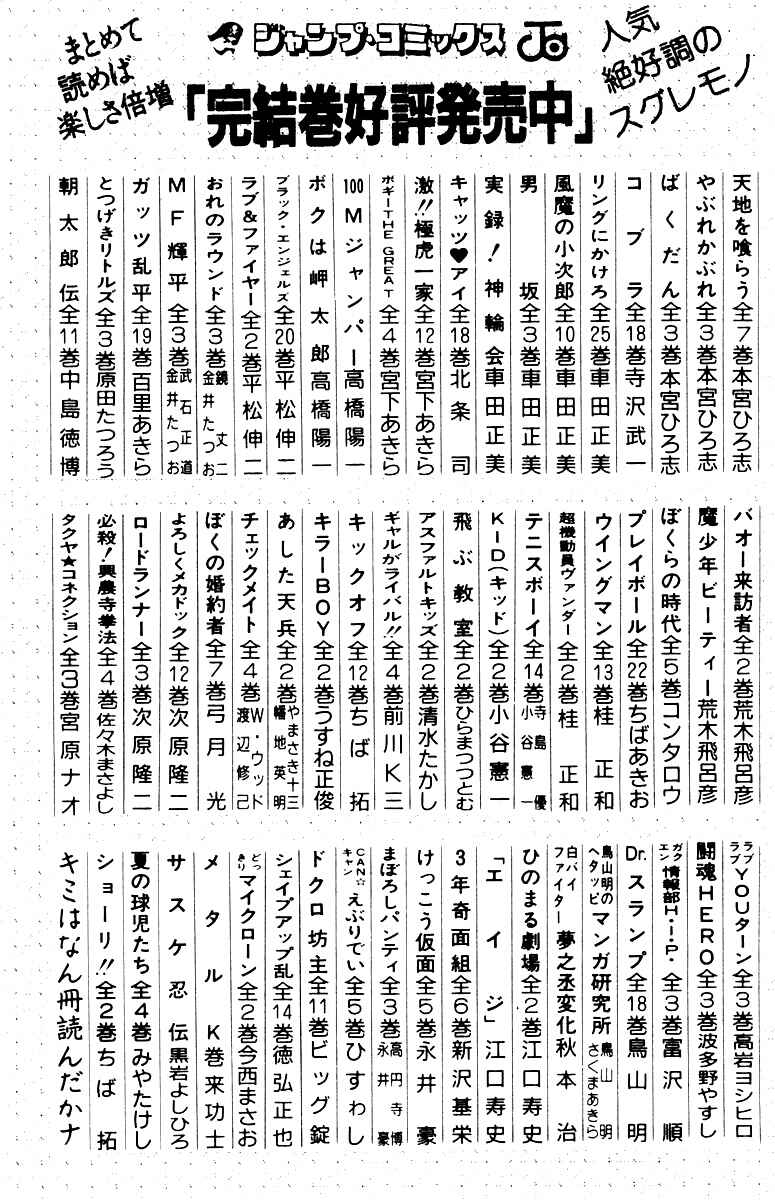 まとめて
読めば
楽しさ倍増
ジャンプ・コミックス
人気
絶好調の
スグレモノ
「完結巻好評発売中」
天地を喰らう全7巻本宮ひろ志
やぶれかぶれ全3巻本宮ひろ志
ばくだん全3巻本宮ひろ志
コブラ全18巻寺沢武一
リングにかけろ全25巻車田正美
風魔の小次郎全10巻車田正美
男坂全3巻車田正美
実録!神輪会車田正美
キャッツ♥アイ全18巻北条司
激!!極虎一家全12巻宮下あきら
ボギーTHE GREAT全4巻宮下あきら
100Mジャンパー高橋陽一
ボクは岬太郎高橋陽一
ブラック・エンジェルズ全20巻平松伸二
ラブ&ファイヤー全2巻平松伸二
おれのラウンド全3巻鏡丈二 金井たつお
MF輝平全3巻武石正道 金井たつお
ガッツ乱平全19巻百里あきら
とつげきリトルズ全3巻原田たつろう
朝太郎伝全11巻中島徳博
バオー来訪者全2巻荒木飛呂彦
魔少年ビーティー荒木飛呂彦
ぼくらの時代全5巻コンタロウ
プレイボール全22巻ちばあきお
ウイングマン全13巻桂正和
超機動員ヴァンダー全2巻桂正和
テニスボーイ全14巻寺島優 小谷憲一
KID(キッド)全2巻小谷憲一
飛ぶ教室全2巻ひらまつつとむ
アスファルトキッズ全2巻清水たかし
ギャルがライバル!!全4巻前川K三
キックオフ全12巻ちば拓
キラーBOY全2巻うすね正俊
あした天兵全2巻やまさき十三 幡地英明
チェックメイト全4巻W・ウッド 渡辺修己
ぼくの婚約者全7巻弓月光
よろしくメカドック全12巻次原隆二
ロードランナー全3巻次原隆二
必殺!興農寺拳法全4巻佐々木まさよし
タクヤ★コネクション全3巻宮原ナオ
ラブラブYOUターン全3巻高岩ヨシヒロ
闘魂HERO全3巻波多野やすし
ガクエン情報部H・I・P・全3巻富沢順
Dr.スランプ全18巻鳥山明
鳥山明のヘタッピマンガ研究所鳥山明 さくまあきら
白バイファイター夢之丞変化秋本治
ひのまる劇場全2巻江口寿史
「エイジ」江口寿史
3年奇面組全6巻新沢基栄
けっこう仮面全5巻永井豪
まぼろしパンティ全3巻高円寺博 永井豪
CAN☆キャンえぶりでい全5巻ひすわし
ドクロ坊主全11巻ビッグ錠
シェイプアップ乱全14巻徳弘正也
どっきりマイクローン全2巻今西まさお
メタルK巻来功士
サスケ忍伝黒岩よしひろ
夏の球児たち全4巻みやたけし
ショーリ!!全2巻ちば拓
キミはなん冊読んだかナ